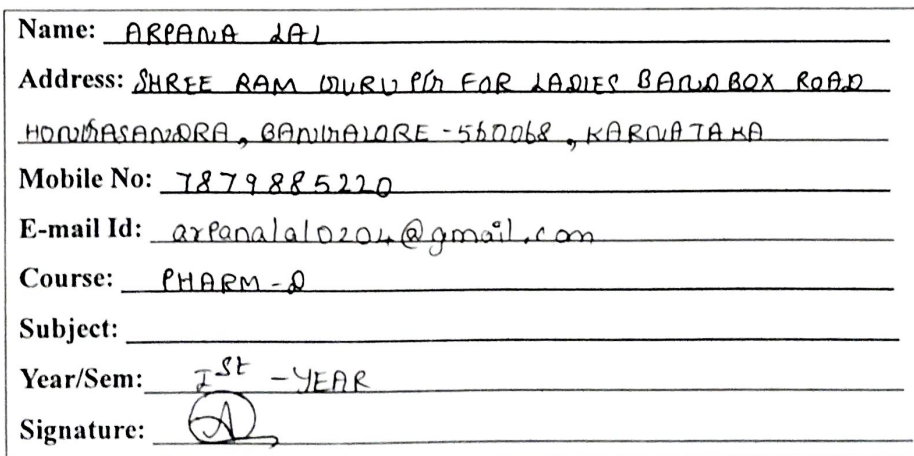 Name: ARPANA LAL
Address: SHREE RAM GURU PG FOR LADIES BANDBOX ROAD
HONGASANDRA, BANGALORE - 560068, KARNATAKA
Mobile No: 7879885220
E-mail Id: arpanalal0204@gmail.com
Course: PHARM-D
Subject:
Year/Sem: Ist - YEAR
Signature: A